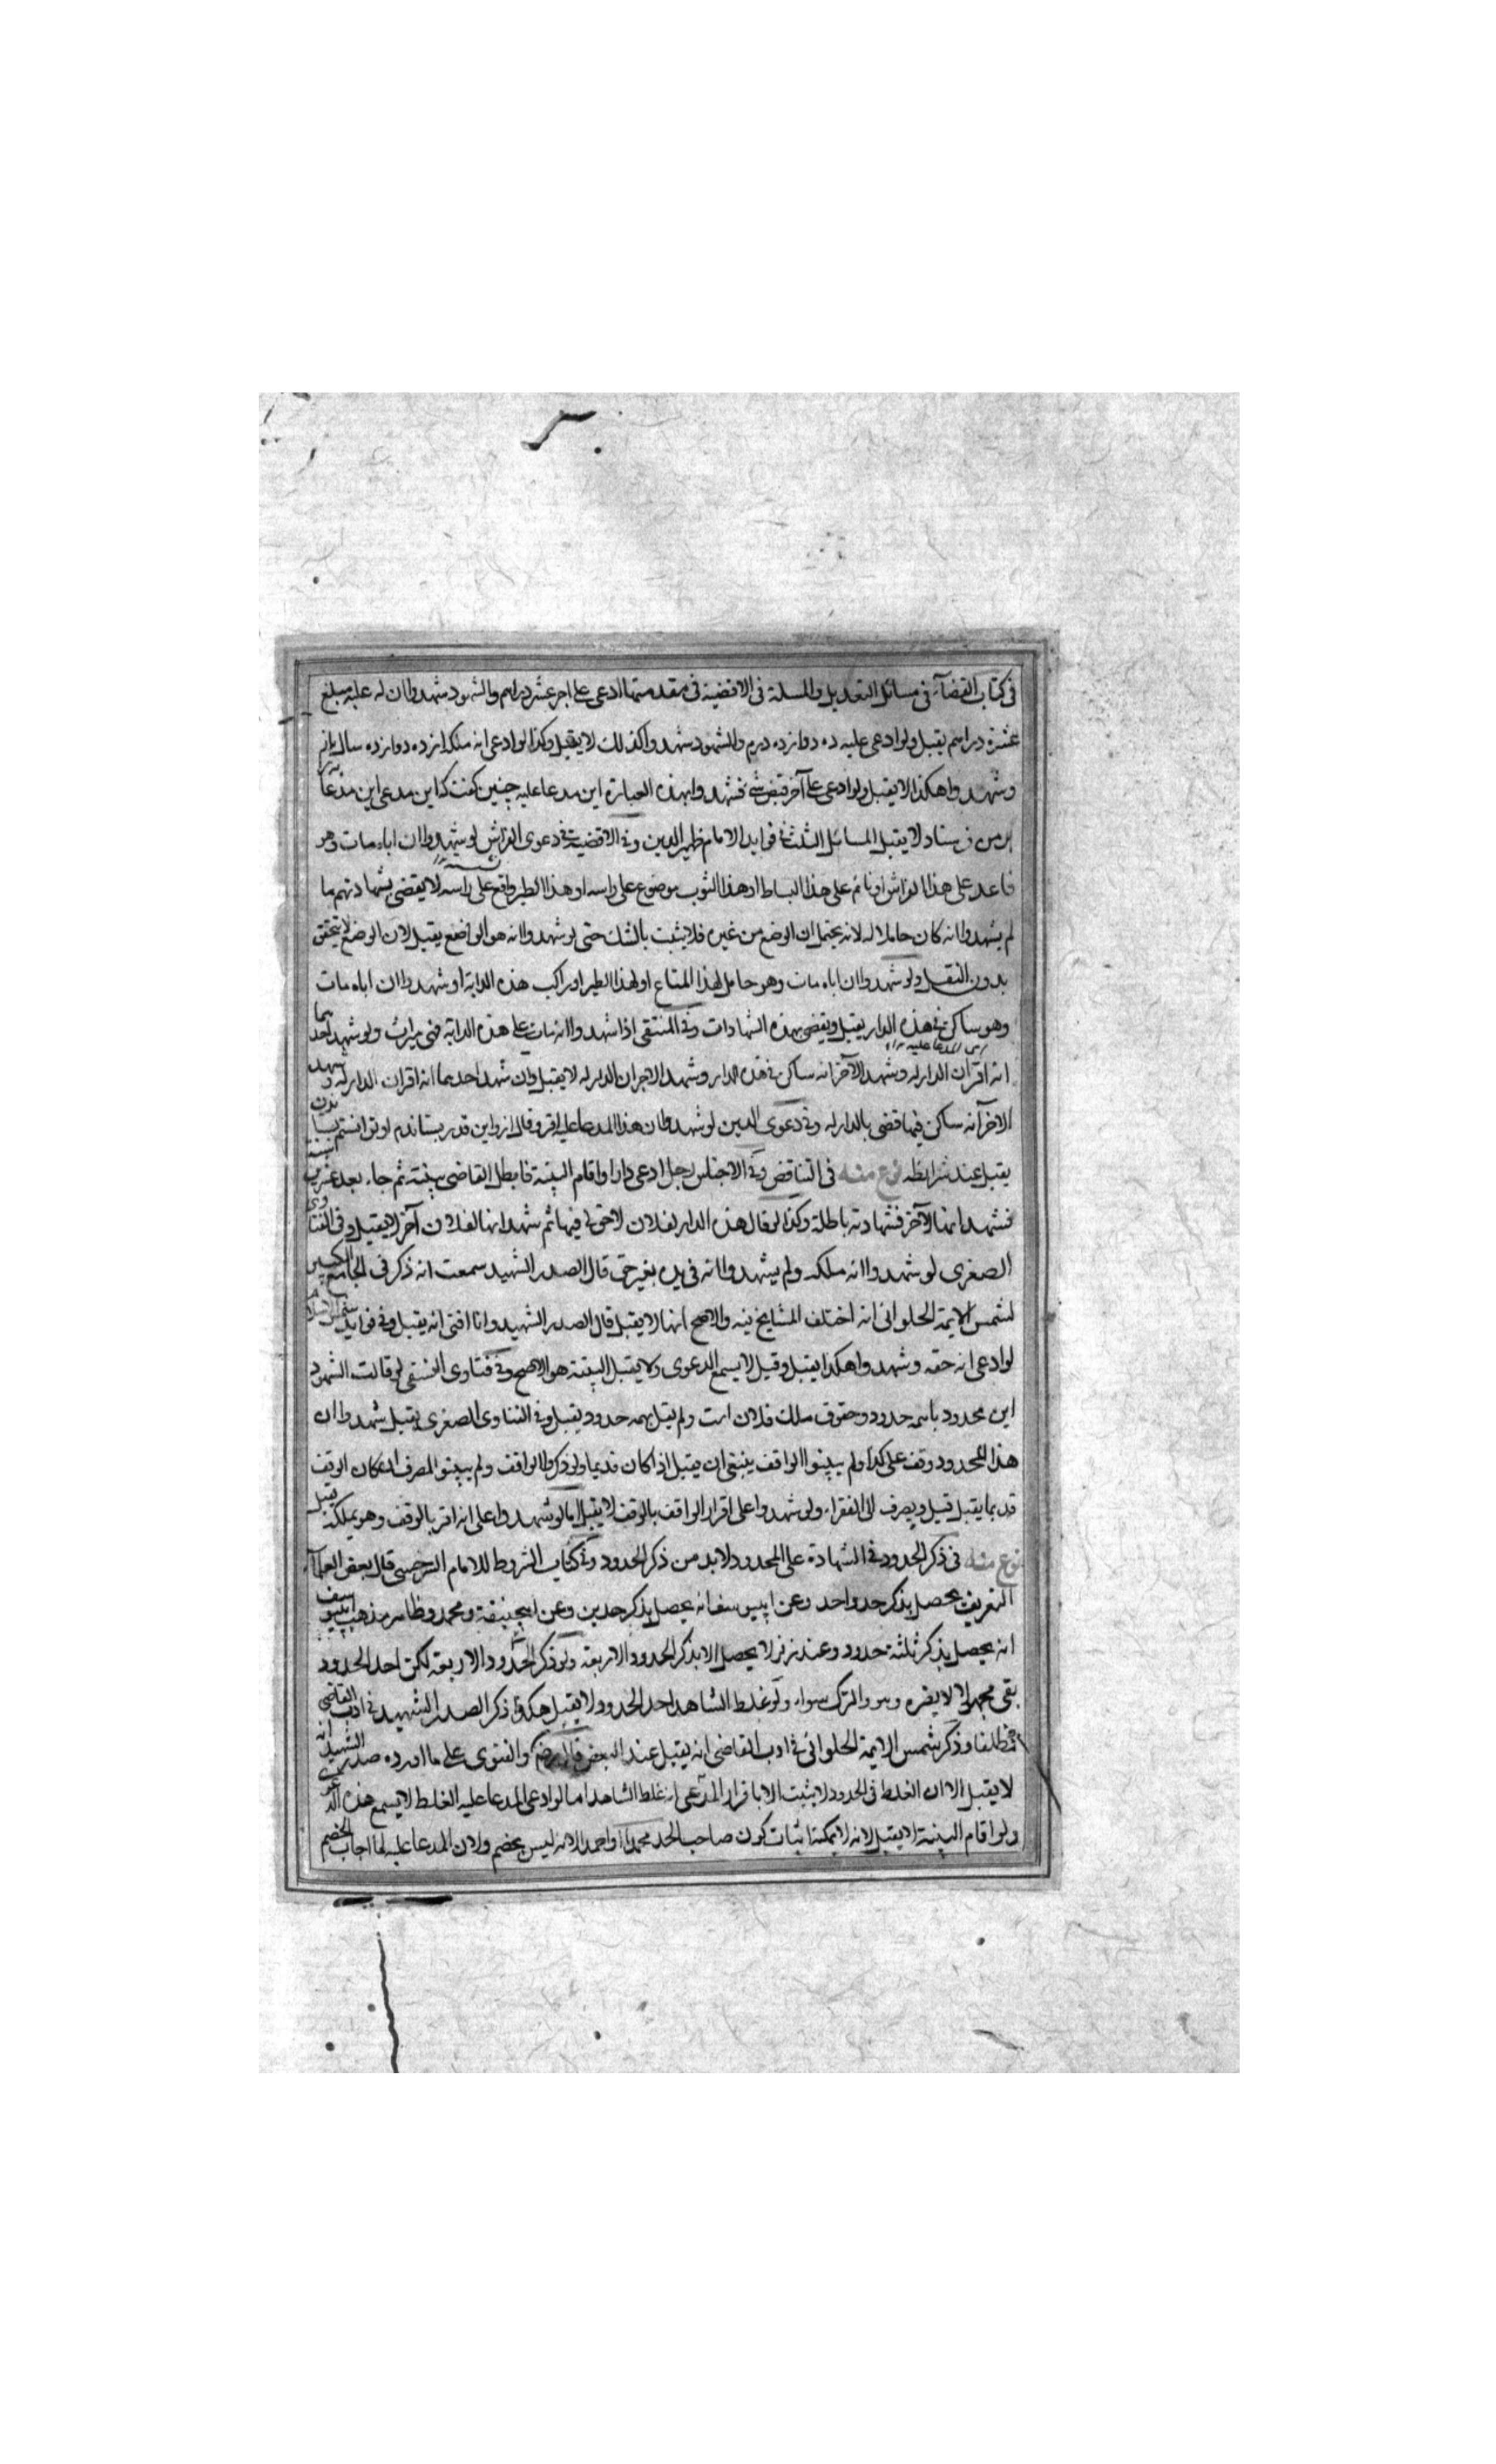 فى كتاب القضآء فى مسائل التعديل والمسلة فى الاقضية فى مقدمتها ادعى على اخر عشر دراهم والشهود شهدوا ان له عليه مبلغ
عشرة دراهم يقبل ولو ادعى عليه ده دوازده درم والشهود شهدوا كذلك لا يقبل وكذا لو ادعى انه ملكه از ده دوازده سال باز
وشهدوا هكذا لا يقبل ولو ادعى على آخر قبض شئ فشهدوا بهذه العبارة اين مدعا عليه چنين كفت كه اين مدعى اين مدعا
بر من فرستاد لا يقبل المسائل الثلث فى فوايد الامام ظهير الدين وفى الاقضية فى دعوى الفراش لو شهدوا ان اباه مات وهو
قاعد على هذا الفراش او نائم على هذا البساط او هذا الثوب موضوع على راسه او هذا الطير واقع على راسه لا يقضى بشهادتهم ما
لم يشهدوا انه كان حاملا له لانه يحتمل ان الوضع من غيره فلا يثبت بالشك حتى لو شهدوا انه هو الواضع يقبل لان الوضع لا يتحقق
بدون النقل ولو شهدوا ان اباه مات وهو حامل لهذا المتاع او لهذا الطير او راكب هذه الدابة او شهدوا ان اباه مات
وهو ساكن فى هذه الدار يقبل ويقضى بهذه الشهادات وفى المنتقى اذا شهدوا انه مات على هذه الدابة فهى ميراث ولو شهد احدهما
انه اقر ان الدار له وشهد الآخر انه ساكن فى هذه الدار وشهد الاخر ان الدار له لا يقبل وان شهد احدهما انه اقر ان الدار له وشهد
الاخر آنه ساكن فيها قضى بالدار له وفى دعوى الدين لو شهدوا ان هذا المدعا عليه اقر وقال ازو اين قدر بستاندم او توانستم
يقبل عند شرايطه نوع منه فى التناقض وفى الاجناس رجل ادعى دارا واقام البينة فابطل القاضى بينته ثم جاء بعد عشرين
فشهد انها لآخر فشهادته باطلة وكذا لو قال هذه الدار لفلان لا حق لى فيها ثم شهد انها لفلان آخر لا يقبل وفى الفتاوى
الصغرى لو شهدوا انه ملكه ولم يشهدوا انه فى يده بغير حق قال الصدر الشهيد سمعت انه ذكر فى الجامع الكبير
لشمس الايمة الحلوانى انه اختلف المشايخ فيه والاصح انها لا يقبل قال الصدر الشهيد وانا افتى انه يقبل وفى فوايد شمس الاسلام
لو ادعى انه حقه وشهدوا هكذا يقبل وقيل لا يسمع الدعوى ولا يقبل البينة هو الاصح وفى فتاوى النسفى لو قالت الشهود
اين محدود باسمه حدود وحقوق ملك فلان است ولم يقل بهمه حدود يقبل وفى الفتاوى الصغرى يقبل شهدوا ان
هذا المحدود وقف على كذا ولم يبينوا الواقف ينبغى ان يقبل اذا كان قديما ولو ذكروا الواقف ولم يبينوا المصرف ان كان الوقف
قديما يقبل قيل ويصرف الى الفقراء ولو شهدوا على اقرار الواقف بالوقف لا يقبل اما لو شهدوا على انه اقر بالوقف وهو يملكه يقبل
نوع منه فى ذكر الحدود فى الشهادة على المحدود لا بد من ذكر الحدود وفى كتاب الشروط للامام السرخسى قال بعض العلمآء
التعريف يحصل بذكر حد واحد وعن ابى يوسف انه يحصل بذكر حدين وعن ابيحنيفة ومحمد وظاهر مذهب ابى يوسف
انه يحصل بذكر ثلثة حدود وعند زفر لا يحصل الا بذكر الحدود الاربعة ولو ذكر الحدود الاربعة لكن احد الحدود
بقى مجهولا لا يضره وهو والترك سواء ولو غلط الشاهد احد الحدود لا يقبل هكذا ذكر الصدر الشهيد فى ادب القاضى
مطلقا وذكر شمس الايمة الحلوانى فى ادب القاضى انه يقبل عند البعض والفتوى على ما اورده صدر الشهيد انه
لا يقبل الا ان الغلط فى الحدود لا يثبت الا باقرار المدعى انه غلط الشاهد اما لو ادعى المدعا عليه الغلط لا يسمع هذه الدعوى
ولو اقام البينة لا يقبل لانه لا يمكنه اثبات كون صاحب الحد محمدا او احمد لانه ليس بخصم ولان المدعا عليه لما اجاب الخصم